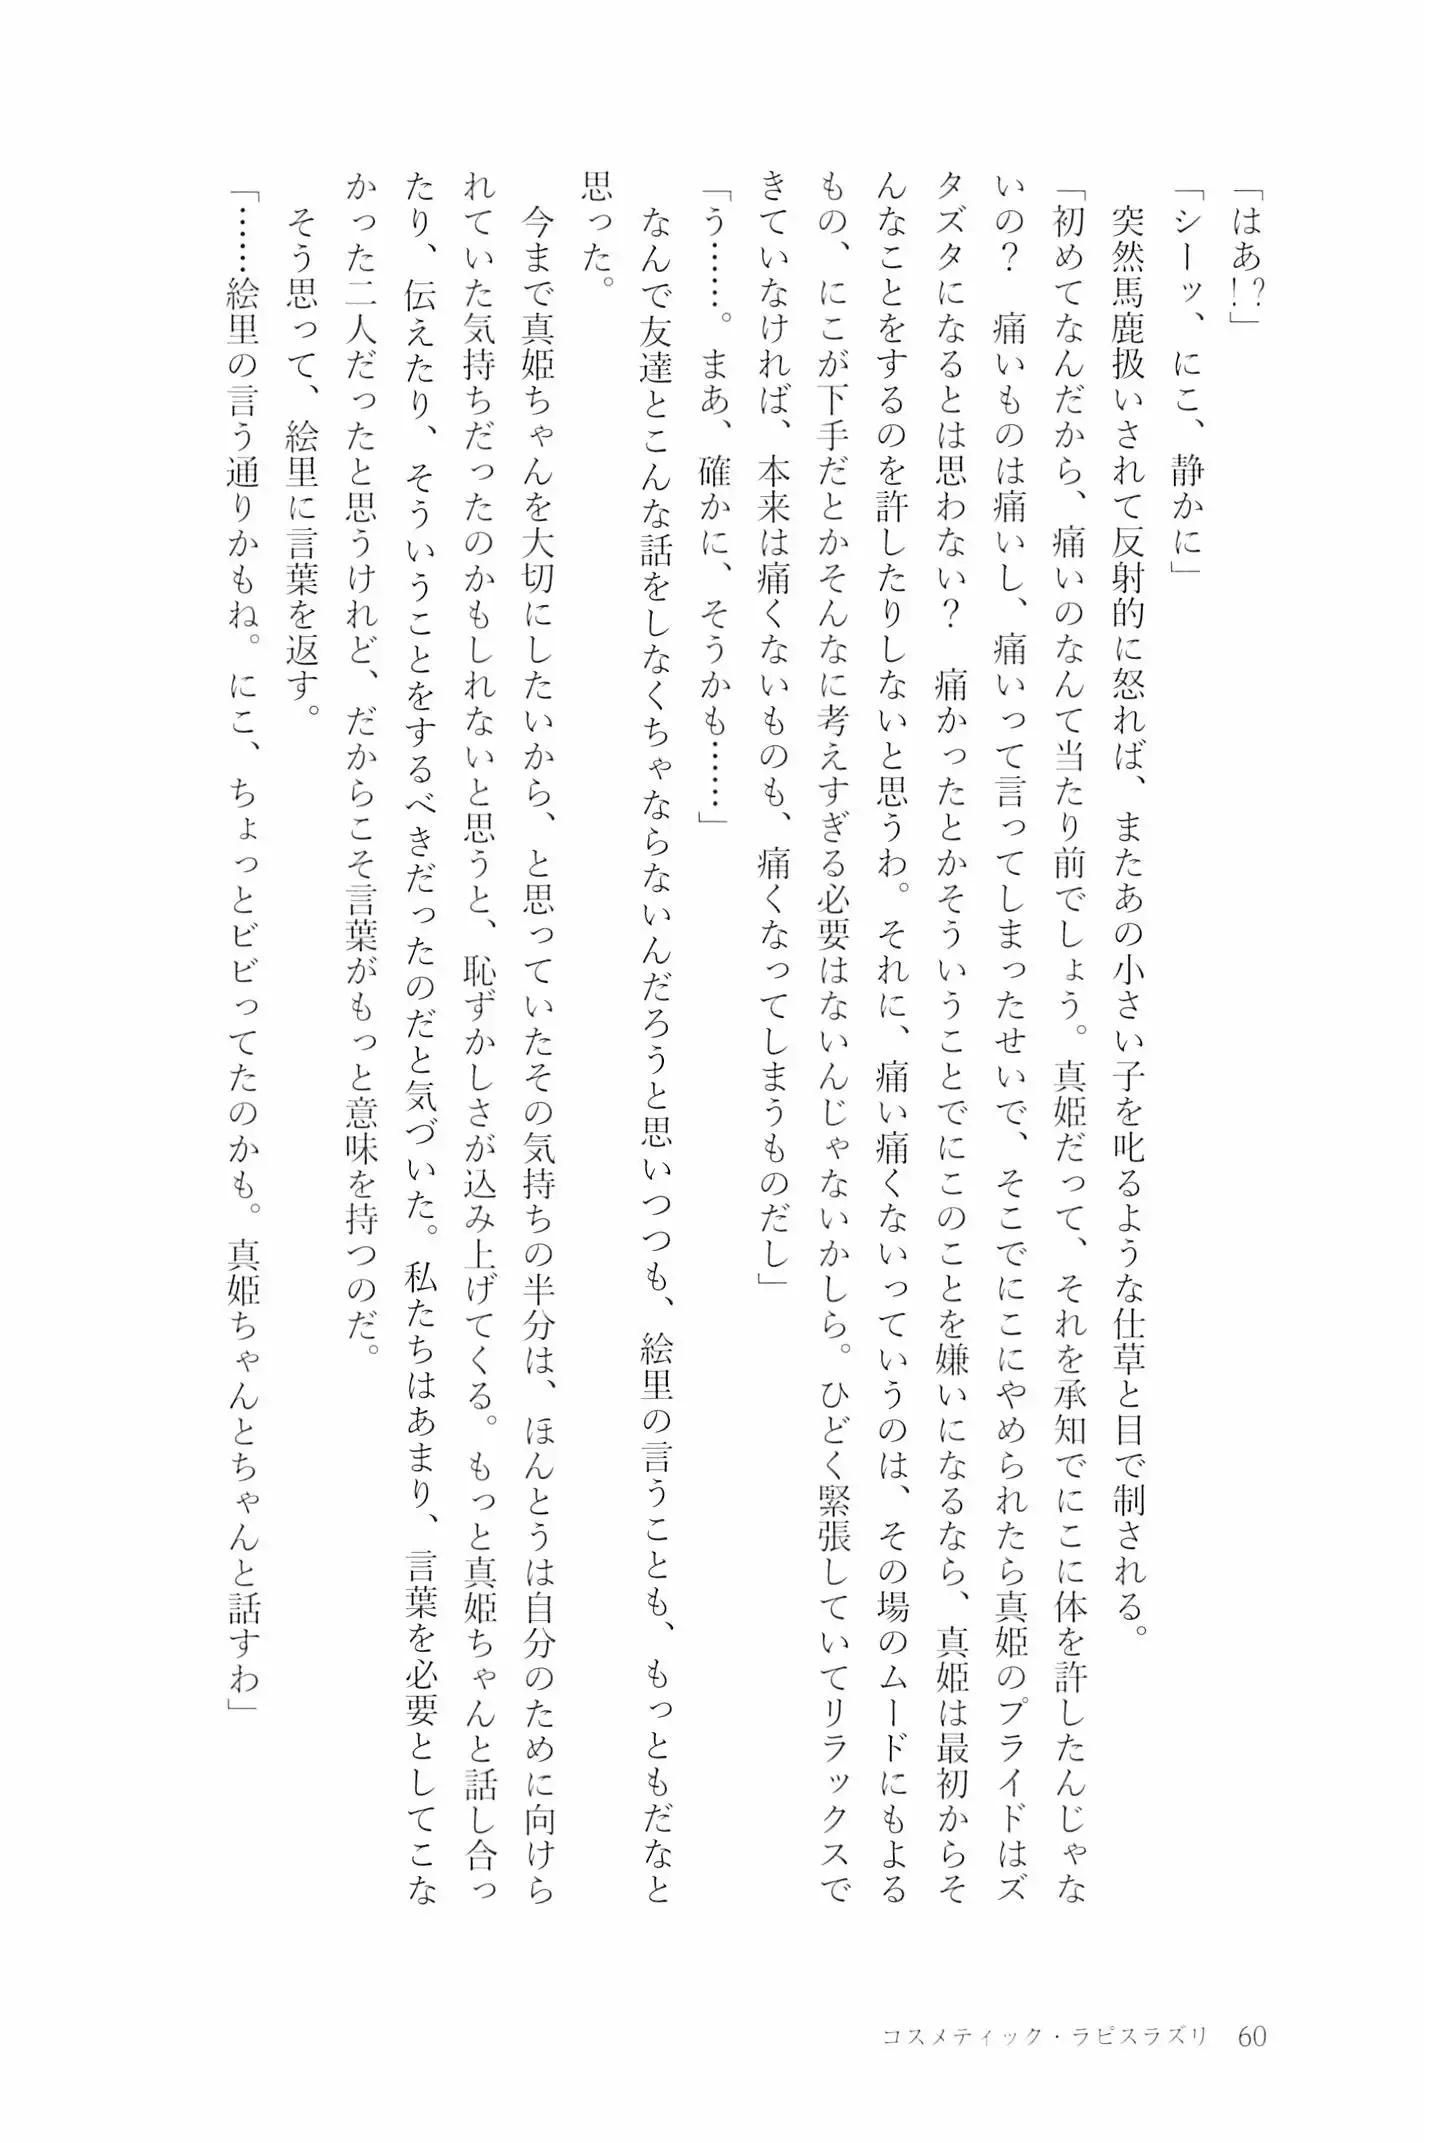 「はあ!?」
「シーッ、にこ、静かに」
　突然馬鹿扱いされて反射的に怒れば、またあの小さい子を叱るような仕草と目で制される。
「初めてなんだから、痛いのなんて当たり前でしょう。真姫だって、それを承知でにこに体を許したんじゃな
いの？　痛いものは痛いし、痛いって言ってしまったせいで、そこでにこにやめられたら真姫のプライドはズ
タズタになるとは思わない？　痛かったとかそういうことでにこのことを嫌いになるなら、真姫は最初からそ
んなことをするのを許したりしないと思うわ。それに、痛い痛くないっていうのは、その場のムードにもよる
もの、にこが下手だとかそんなに考えすぎる必要はないんじゃないかしら。ひどく緊張していてリラックスで
きていなければ、本来は痛くないものも、痛くなってしまうものだし」
「う……。まあ、確かに、そうかも……」
　なんで友達とこんな話をしなくちゃならないんだろうと思いつつも、絵里の言うことも、もっともだなと
思った。
　今まで真姫ちゃんを大切にしたいから、と思っていたその気持ちの半分は、ほんとうは自分のために向けら
れていた気持ちだったのかもしれないと思うと、恥ずかしさが込み上げてくる。もっと真姫ちゃんと話し合っ
たり、伝えたり、そういうことをするべきだったのだと気づいた。私たちはあまり、言葉を必要としてこな
かった二人だったと思うけれど、だからこそ言葉がもっと意味を持つのだ。
　そう思って、絵里に言葉を返す。
「……絵里の言う通りかもね。にこ、ちょっとビビってたのかも。真姫ちゃんとちゃんと話すわ」
コスメティック・ラピスラズリ　60